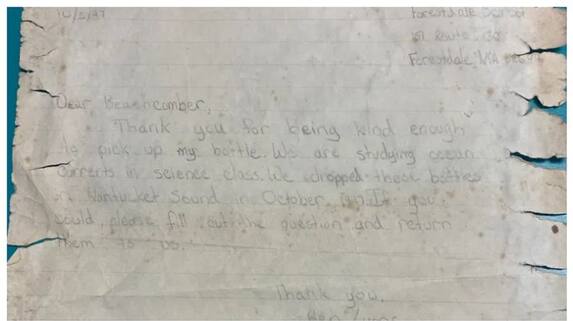 10/2/97
Forestdale School
151 Route 130
Forestdale, MA
Dear Beachcomber,
Thank you for being kind enough
to pick up my bottle. We are studying ocean
currents in science class. We dropped these bottles
in Nantucket Sound in October. If you
could please fill out the question and return
them to us.
Thank you,
Ben